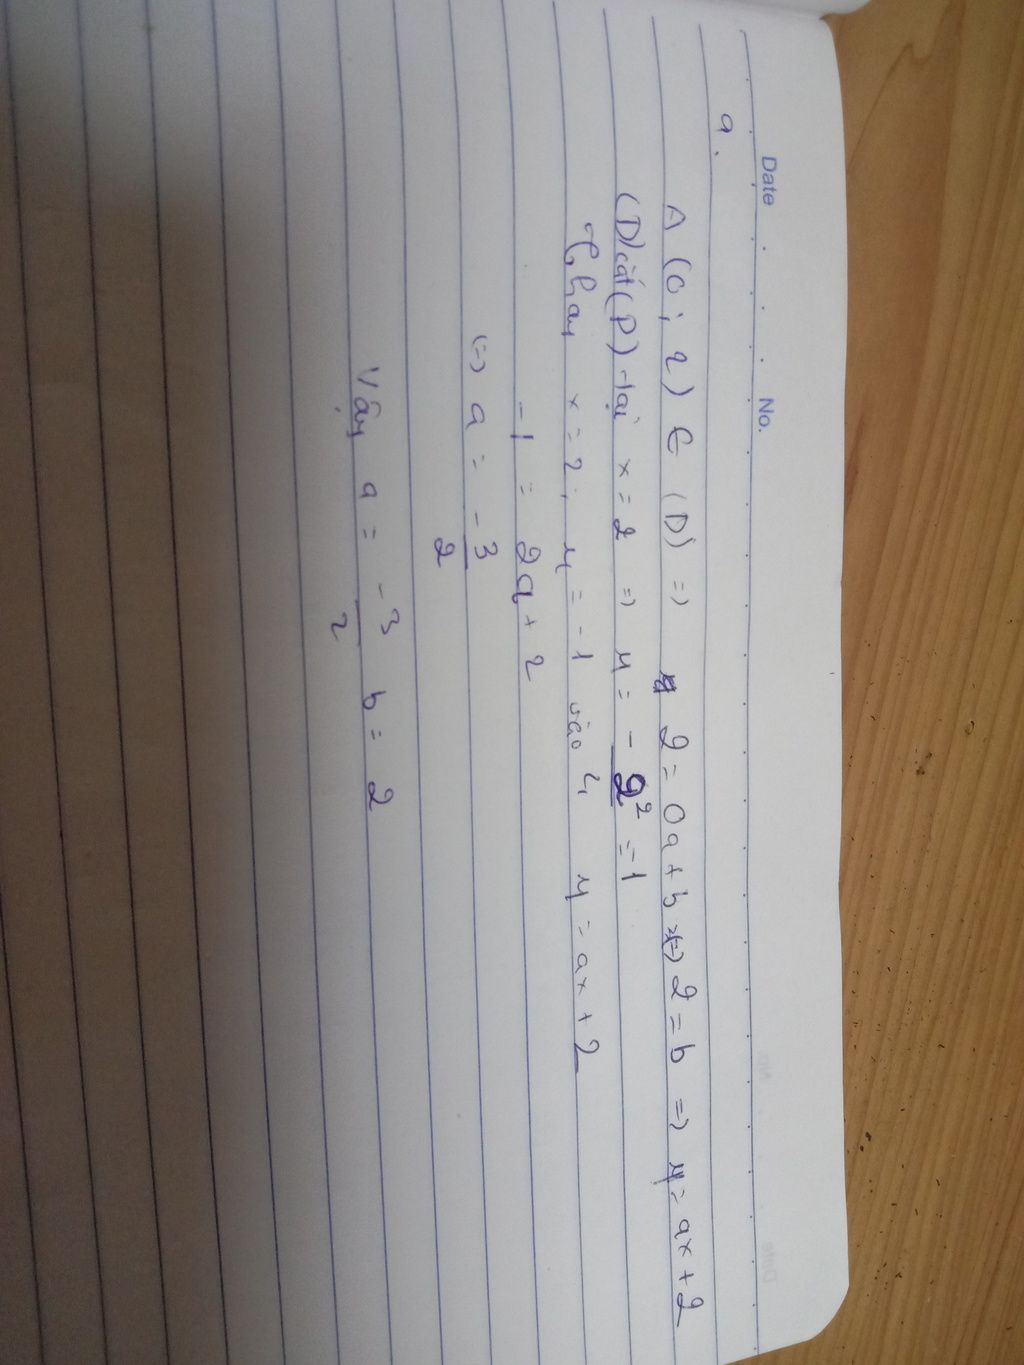 Date No.
a.
A (0; 2) ∈ (D) => 2 = 0a + b (=) 2 = b => y = ax + 2
(D) cắt (P) tại x = 2 => y = - 2² = -1
Thay x = 2; y = -1 vào y = ax + 2
-1 = 2a + 2
(=) a = -3/2
Vậy a = -3/2 b = 2